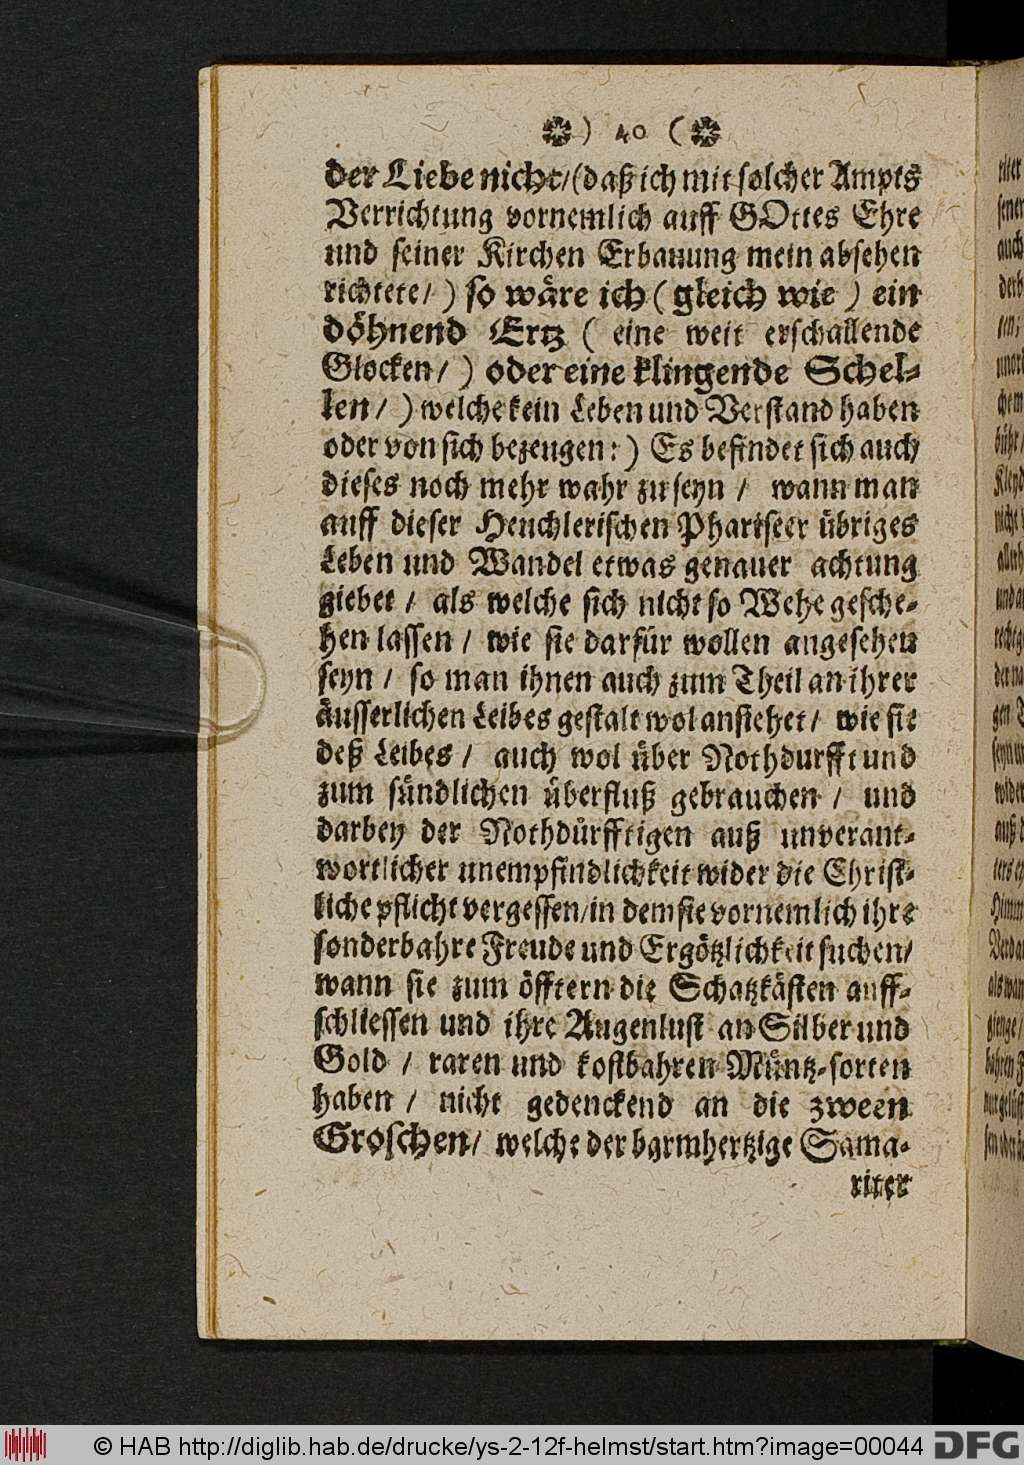 ) 40 (
der Liebe nicht/ (daß ich mit solcher Ampts
Verrichtung vornemlich auff GOttes Ehre
und seiner Kirchen Erbauung mein absehen
richtete/ ) so wäre ich ( gleich wie ) ein
döhnend Ertz ( eine weit erschallende
Glocken/ ) oder eine klingende Schel-
len/ ) welche kein Leben und Verstand haben
oder von sich bezeugen: ) Es befindet sich auch
dieses noch mehr wahr zu seyn / wann man
auff dieser Heuchlerischen Phariseer übriges
Leben und Wandel etwas genauer achtung
giebet / als welche sich nicht so Wehe gesche-
hen lassen / wie sie darfür wollen angesehen
seyn / so man ihnen auch zum Theil an ihrer
äusserlichen Leibes gestalt wol ansiehet/ wie sie
deß Leibes / auch wol über Nothdurfft und
zum sündlichen überfluß gebrauchen / und
darbey der Nothdürfftigen auß unverant-
wortlicher unempfindlichkeit wider die Christ-
liche pflicht vergessen/ in dem sie vornemlich ihre
sonderbahre Freude und Ergötzlichkeit suchen/
wann sie zum öfftern die Schatzkästen auff-
schliessen und ihre Augenlust an Silber und
Gold / raren und kostbahren Müntz-sorten
haben / nicht gedenckend an die zween
Groschen/ welche der barmhertzige Sama-
riter
© HAB http://diglib.hab.de/drucke/ys-2-12f-helmst/start.htm?image=00044
DFG